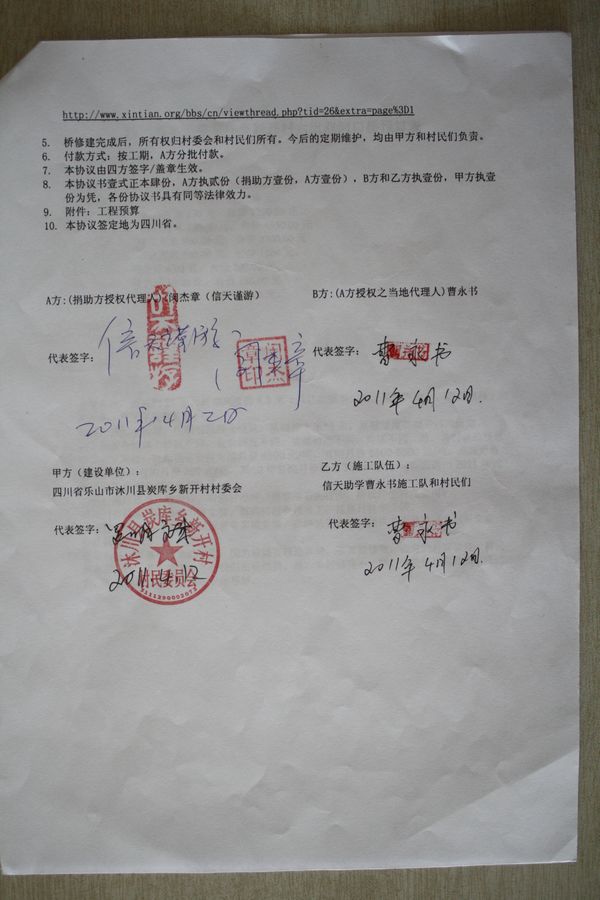 http://www.xintian.org/bbs/cn/viewthread.php?tid=26&extra=page%3D1
5. 桥修建完成后，所有权归村委会和村民们所有。今后的定期维护，均由甲方和村民们负责。
6. 付款方式：按工期，A方分批付款。
7. 本协议由四方签字/盖章生效。
8. 本协议书壹式正本肆份，A方执贰份（捐助方壹份，A方壹份），B方和乙方执壹份，甲方执壹
份为凭，各份协议书具有同等法律效力。
9. 附件：工程预算
10. 本协议签定地为四川省。
A方:(捐助方授权代理人)闵杰章（信天谨游）
B方：(A方授权之当地代理人)曹永书
代表签字：信天谨游
代表签字：曹永书
2011年4月2日
2011年4月12日.
甲方（建设单位）：
乙方（施工队伍）：
四川省乐山市沐川县炭库乡新开村村委会
信天助学曹永书施工队和村民们
代表签字：
代表签字：曹永书
2011.4.12
2011年4月12日.
沐川县炭库乡新开村
居民委员会
5111290002072